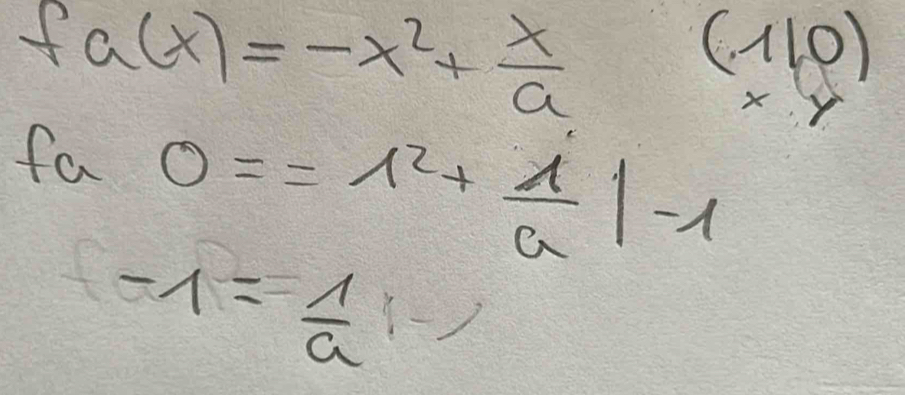 fa(x) = -x² + x/a (1|0)
x y
fa 0 = = 1² + 1/a | -1
-1 = 1/a